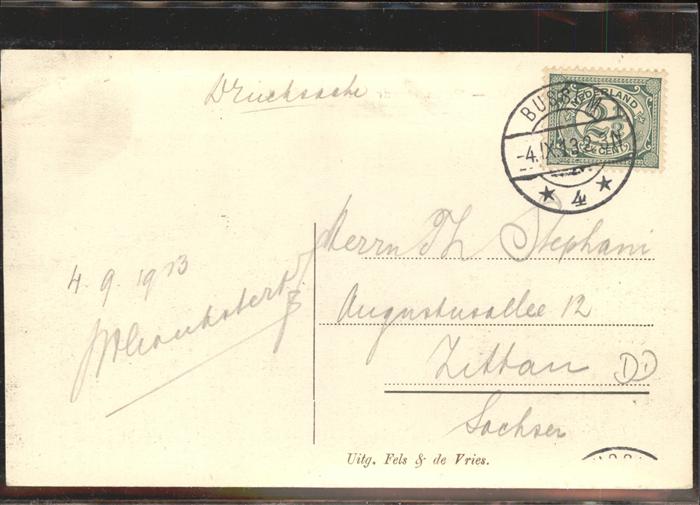 Drucksache
NEDERLAND
2½ CENT
BUSSUM
-4.IX.13.2-3N
4
4.9.1913
Herrn Th Stephani
Augustusallee 12
Zittau
Sachsen
Uitg. Fels & de Vries.